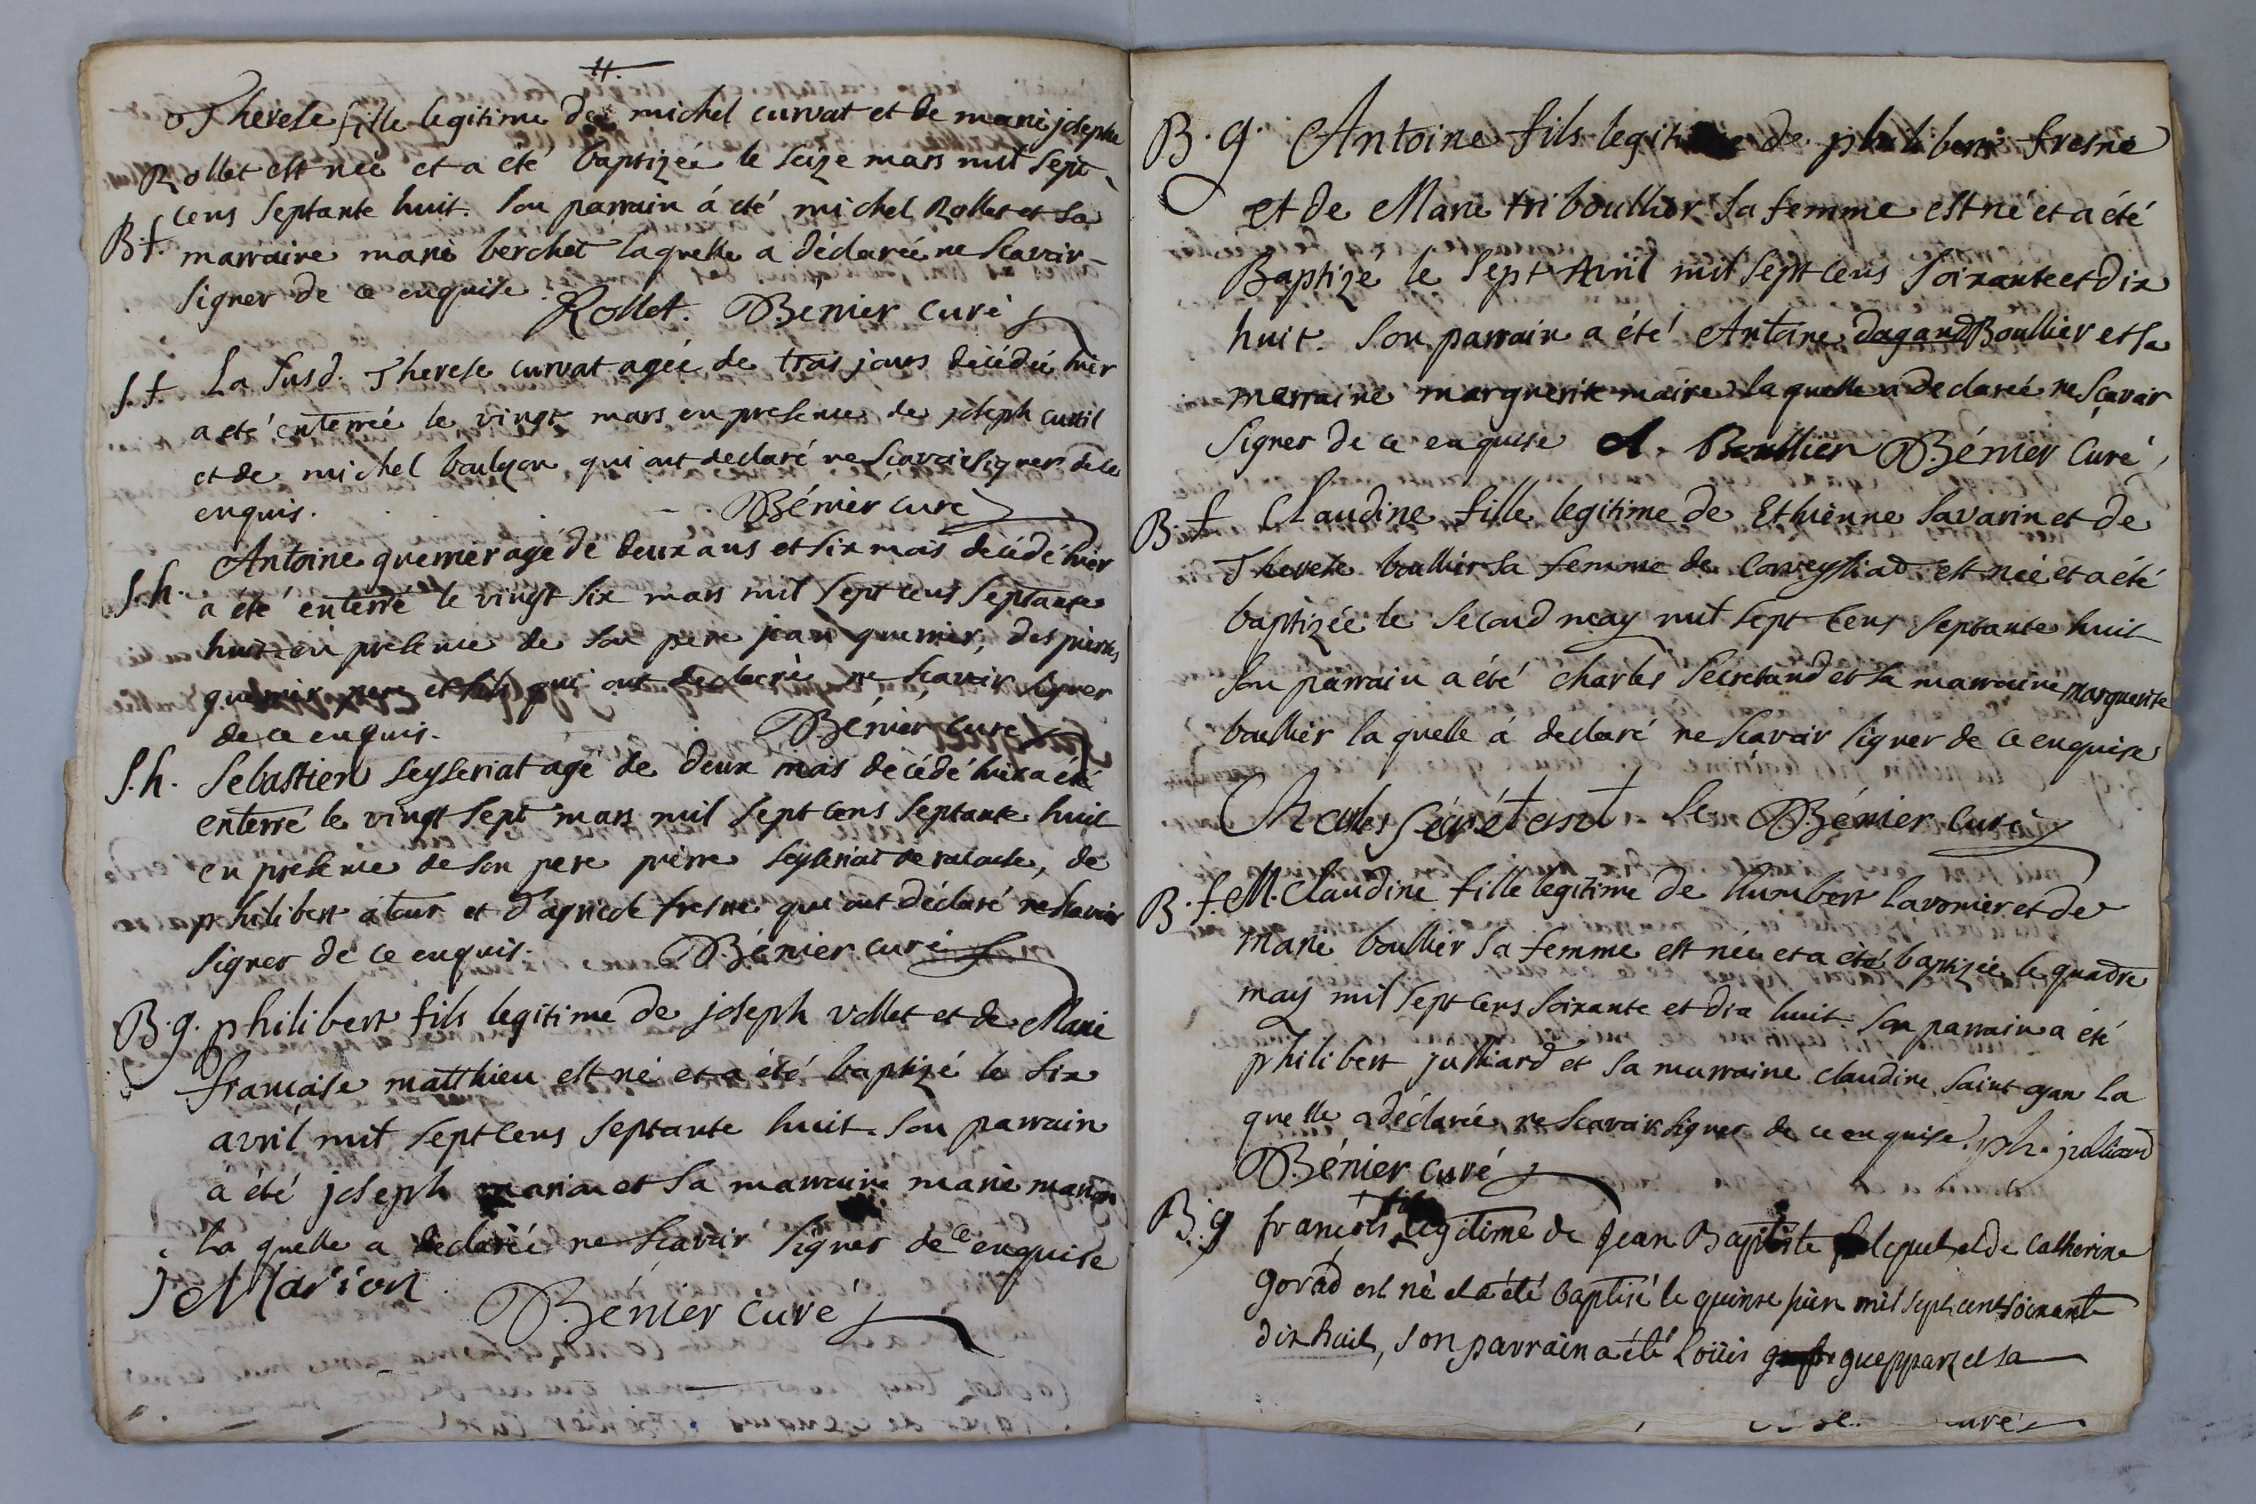 11.
Therese fille legitime de michel curvat et de marie josephe
Rollet est née et a été baptizée le seize mars mil sept
cens septante huit. son parrain á eté michel Rollet et sa
B. f. marraine marie berchet laquelle a déclarée ne scavoir
signer de ce enquise. Rollet. Bénier curé
S. f La susd. Therese curvat agée de trois jours décédée hier
a eté enterrée le vingt mars en presence de joseph curtil
et de michel boulyon qui ont declaré ne scavoir signer de ce
enquis. Bénier curé
Antoine querrier agé de deux ans et six mois décédé hier
S. h. a été enterré le vingt six mars mil sept cens septante
huit en presence de son pere jean querrier, des pierres
querrier pere et fils qui ont declaré ne scavoir signer
de ce enquis. Bénier curé
S. h. Sebastien seyseriat agé de deux mois décédé hier a été
enterré le vingt sept mars mil sept cens septante huit
en presence de son pere pierre seyseriat de, de
philibert et d' fresne qui ont déclaré ne scavoir
signer de ce enquis. Bénier curé
B. g. philibert fils legitime de joseph vollet et de Marie
francoise matthieu est né et a été baptizé le six
avril mil sept cens septante huit. son parrain
a été joseph marion et sa marraine marie marion
la quelle a declarée ne scavoir signer de ce enquise
J Marion
Bénier curé
B. g. Antoine fils legitime de philibert fresne
et de Marie tri boullier sa femme est né et a été
Baptizé le sept Avril mil sept cens soixante et dix
huit. son parrain a été Antoine dagand Boullier et sa
marraine marguerite maire la quelle a declarée ne scavoir
signer de ce enquise A. Boullier Bénier Curé
B. f Claudine fille legitime de Ethienne savarin et de
Therese boullier sa femme de Corveyssiad est née et a été
baptizée le second may mil sept cens septante huit
son parrain a été charles secretand et sa marraine marguerite
boullier la quelle á declaré ne scavoir signer de ce enquise
Charles Bénier curé
B. f. M. Claudine fille legitime de humbert lavonier et de
marie boullier sa femme est née et a été baptizée le quadre
may mil sept cens soixante et dix huit. son parrain a été
philibert julliard et sa marraine claudine saint oyan la
quelle a déclarée ne scavoir signer de ce enquise. ph. julliard
Bénier curé
B. g françois fils legitime de Jean Baptiste et de catherine
gorad est né et a été baptisé le quinse juin mil sept cent soixante
dix huit, son parrain a été Loüis gueppaz et sa